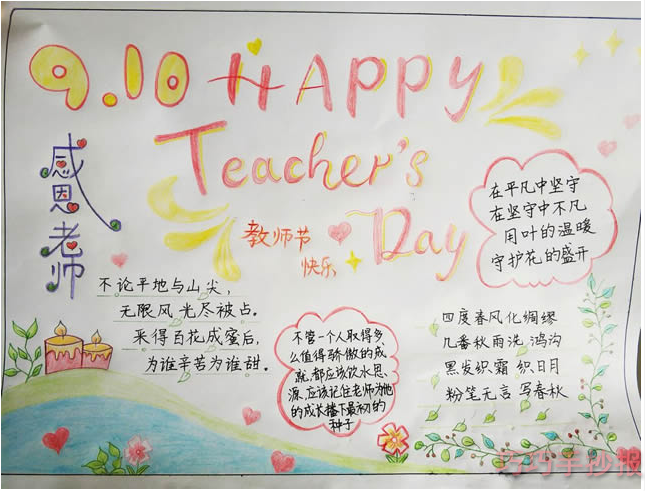 9.10 HAPPY
Teacher's
Day
感恩老师
教师节
快乐
在平凡中坚守
在坚守中不凡
用叶的温暖
守护花的盛开
不论平地与山尖，
无限风光尽被占。
采得百花成蜜后，
为谁辛苦为谁甜。
不管一个人取得多
么值得骄傲的成
就，都应该饮水思
源，应该记住老师为他
的成长播下最初的
种子
四度春风化绸缪
几番秋雨洗鸿沟
黑发织霜织日月
粉笔无言写春秋
巧巧手抄报